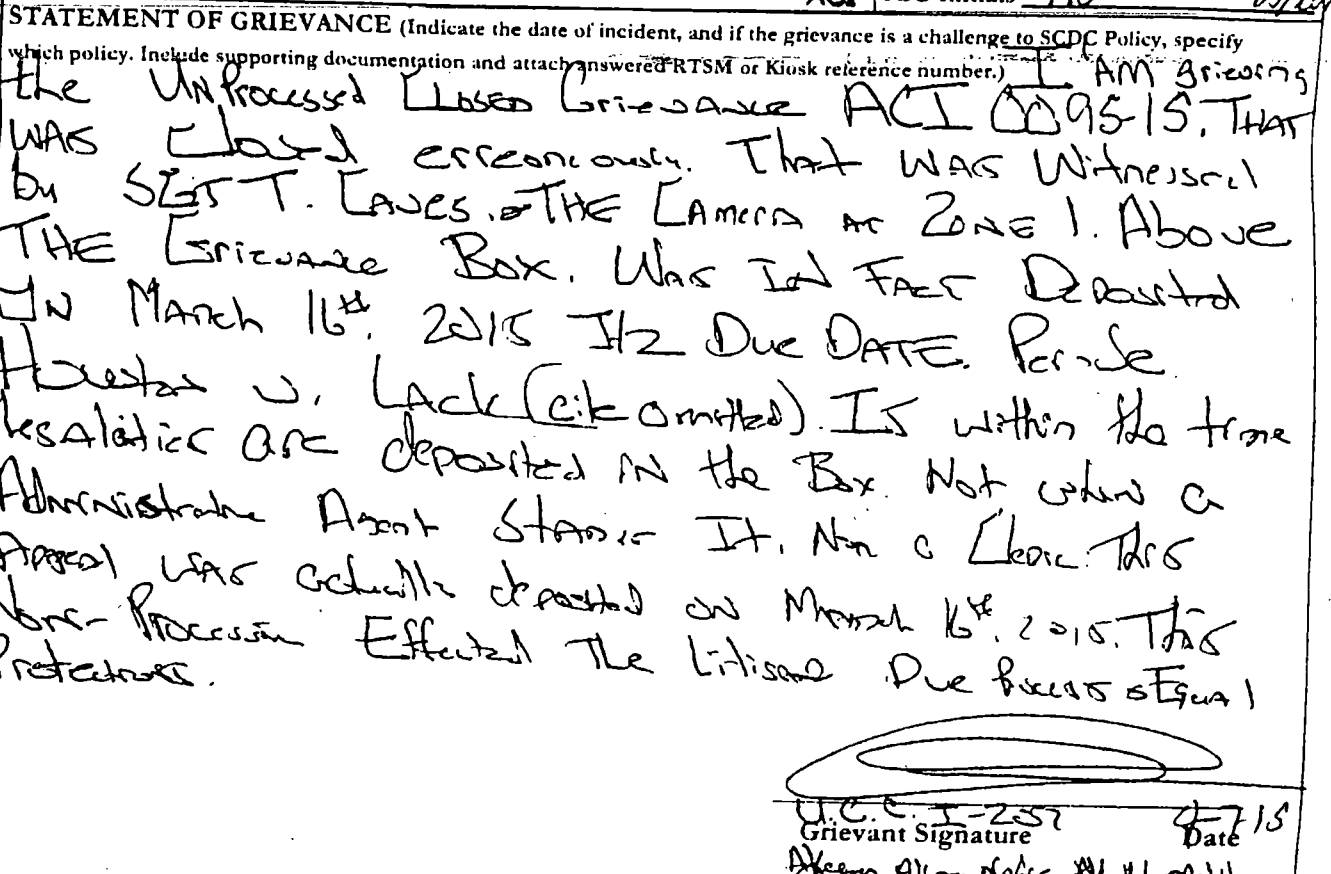 STATEMENT OF GRIEVANCE (Indicate the date of incident, and if the grievance is a challenge to SCDC Policy, specify
which policy. Include supporting documentation and attach answered RTSM or Kiosk reference number.) I AM grieving
the UNProcessed Closed Grievance ACI 0095-15. THAT
WAS Closed erreoneously. That WAS Witnessed
by SGT T. CAVES. & THE CAmera At ZONE 1. Above
THE Grievance Box. WAS IN FACT Deposited
IN March 16th. 2015 Itz Due DATE.
Houston v. LAck (cite omitted). IS within the time
are deposited IN the Box. Not when a
Administrative Agent Stamps It. Nor a Clerk. This
Appeal WAS actually deposited ON March 16th. 2015. This
Non-Processing Effected The Litigant Due Process & Equal
Protections.
U.C.C. 1-207
Grievant Signature Date